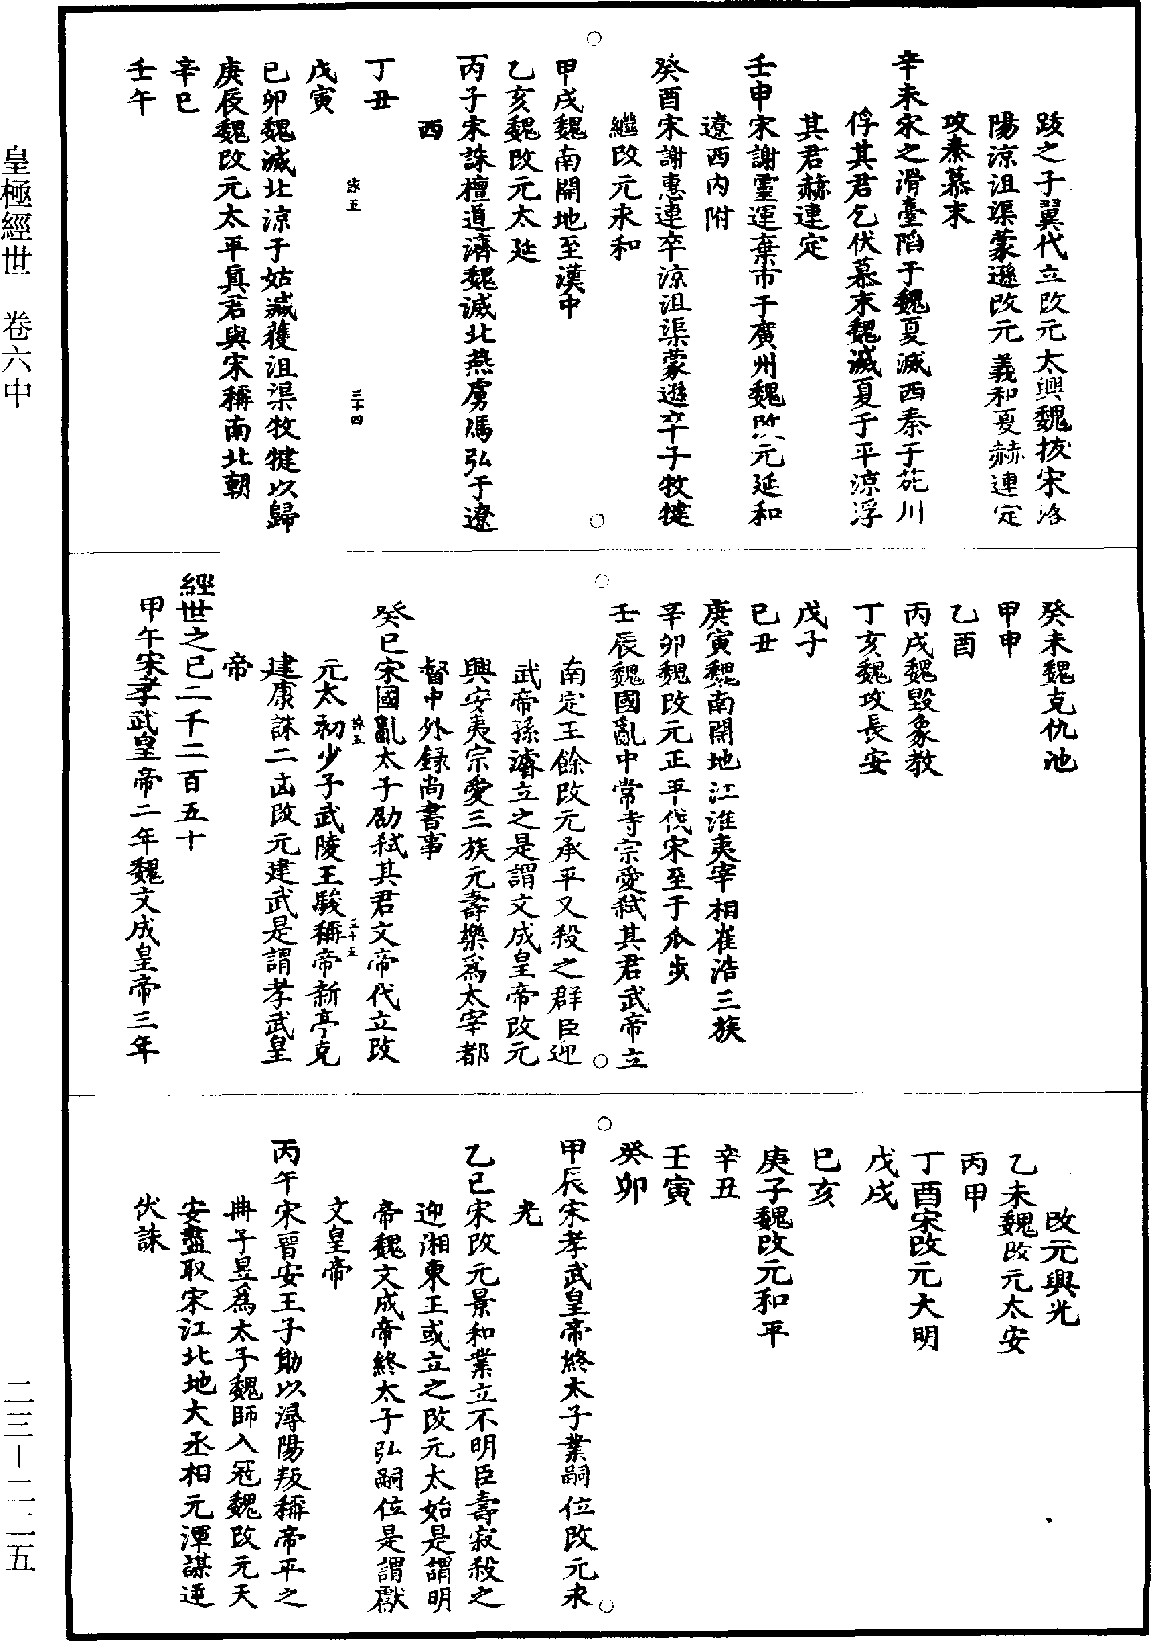 皇極經世　卷六中
跋之子翼代立改元太興魏拔宋洛
陽涼沮渠蒙遜改元義和夏赫連定
攻秦慕末
辛未宋之滑臺陷于魏夏滅西秦于苑川
俘其君乞伏慕末魏滅夏于平涼浮
其君赫連定
壬申宋謝靈運棄市于廣州魏改元延和
遼西內附
癸酉宋謝惠連卒涼沮渠蒙遜卒子牧犍
繼改元永和
甲戌魏南開地至漢中
乙亥魏改元太延
丙子宋誅檀道濟魏滅北燕虜馮弘于遼
西
丁丑
詠五　三十四
戊寅
己卯魏滅北涼于姑臧獲沮渠牧犍以歸
庚辰魏改元太平真君與宋稱南北朝
辛巳
壬午
癸未魏克仇池
甲申
乙酉
丙戌魏毀象教
丁亥魏攻長安
戊子
己丑
庚寅魏南開地江淮夷宰相崔浩三族
辛卯魏改元正平伐宋至于瓜步
壬辰魏國亂中常寺宗愛弒其君武帝立
南定王餘改元承平又殺之群臣迎
武帝孫濬立之是謂文成皇帝改元
興安夷宗愛三族元壽樂為太宰都
督中外錄尚書事
癸巳宋國亂太子劭弒其君文帝代立改
詠五　三十五
元太初少子武陵王駿稱帝新亭克
建康誅二凶改元建武是謂孝武皇
帝
經世之巳二千二百五十
甲午宋孝武皇帝二年魏文成皇帝三年
改元興光
乙未魏改元太安
丙申
丁酉宋改元大明
戊戌
己亥
庚子魏改元和平
辛丑
壬寅
癸卯
甲辰宋孝武皇帝終太子業嗣位改元永
光
乙巳宋改元景和業立不明臣壽寂殺之
迎湘東王彧立之改元太始是謂明
帝魏文成帝終太子弘嗣位是謂獻
文皇帝
丙午宋晉安王子勛以潯陽叛稱帝平之
冊子昱為太子魏師入寇魏改元天
安盡取宋江北地大丞相元渾謀逆
伏誅
二三—二二五